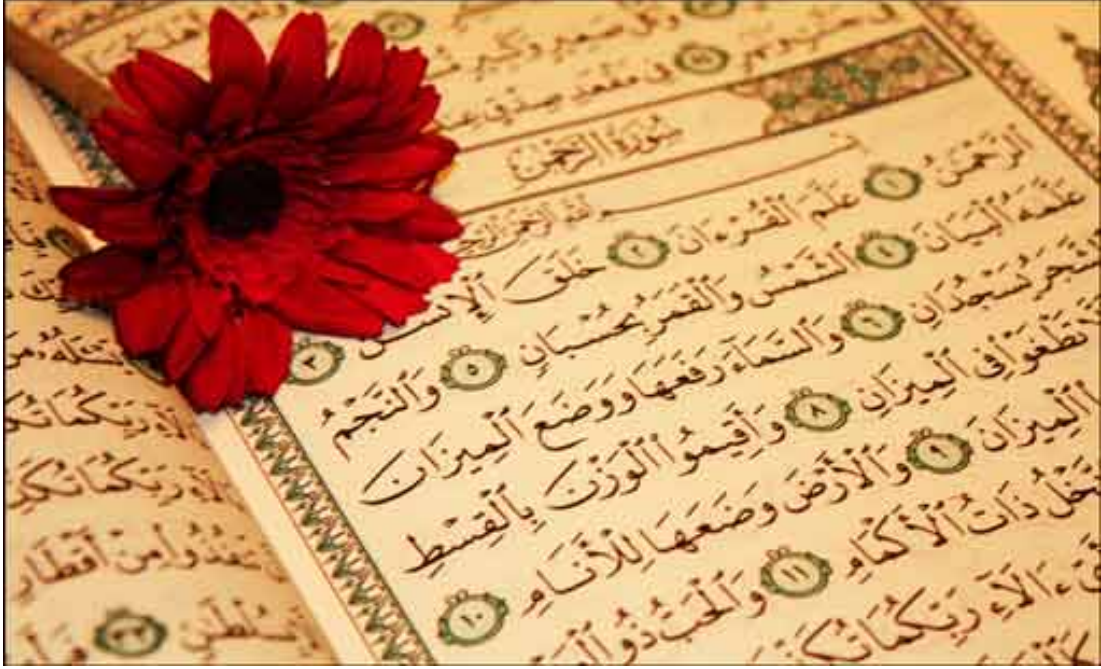 صَغِيرٍ وَكَبِيرٍ
فِى مَقْعَدِ صِدْقٍ
سُورَةُ الرَّحْمَٰنِ
اللَّهِ الرَّحْمَٰنِ
ٱلرَّحْمَٰنُ ١ عَلَّمَ ٱلْقُرْءَانَ ٢ خَلَقَ ٱلْإِنسَٰنَ ٣
عَلَّمَهُ ٱلْبَيَانَ ٤ ٱلشَّمْسُ وَٱلْقَمَرُ بِحُسْبَانٍ ٥ وَٱلنَّجْمُ
لشَّجَرُ يَسْجُدَانِ ٦ وَٱلسَّمَآءَ رَفَعَهَا وَوَضَعَ ٱلْمِيزَانَ
تَطْغَوْا۟ فِى ٱلْمِيزَانِ ٨ وَأَقِيمُوا۟ ٱلْوَزْنَ بِٱلْقِسْطِ
ٱلْمِيزَانَ ٩ وَٱلْأَرْضَ وَضَعَهَا لِلْأَنَامِ ١٠
نَّخْلُ ذَاتُ ٱلْأَكْمَامِ ١١ وَٱلْحَبُّ ذُو
ءَالَآءِ رَبِّكُمَا
رَبِّكُمَا
رَبِّكُمَا
مِنْ أَقْطَارِ
بِسُلْطَٰنٍ ٣٣